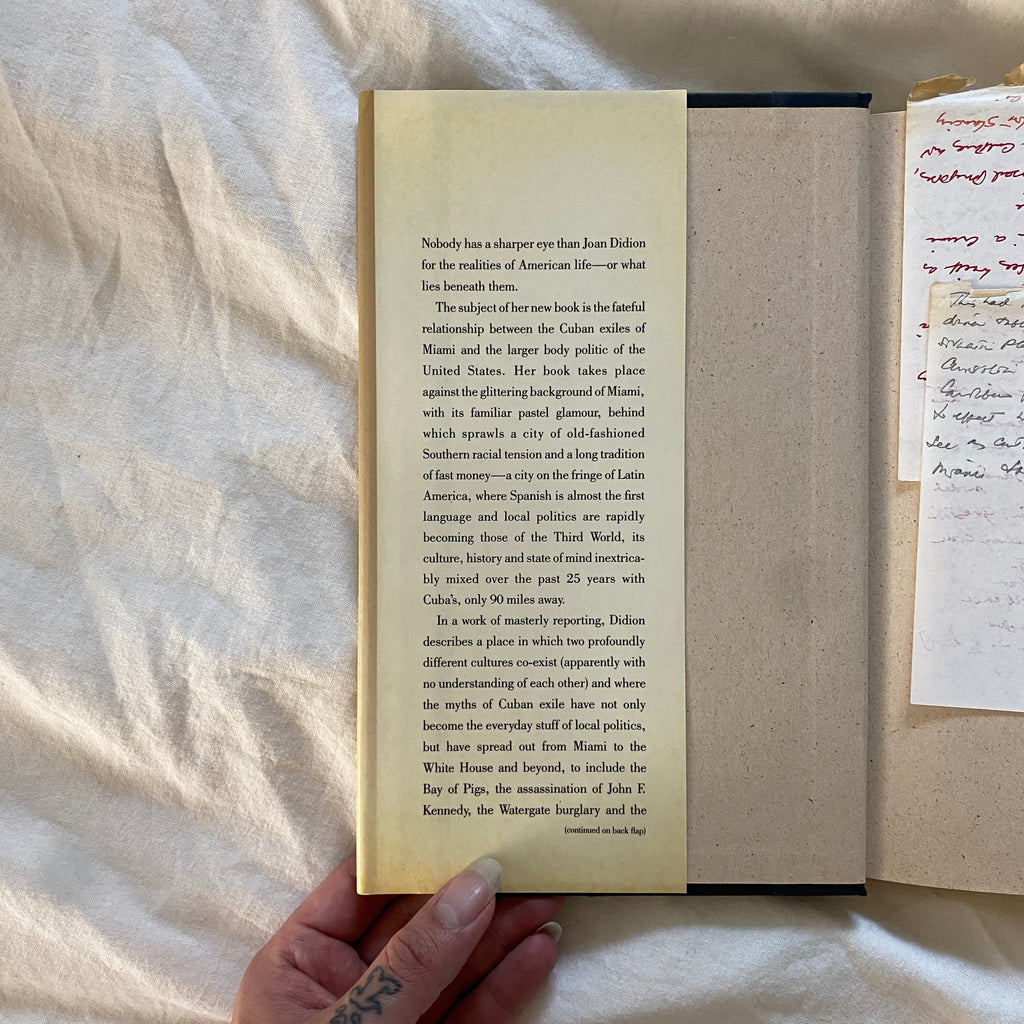 Nobody has a sharper eye than Joan Didion
for the realities of American life—or what
lies beneath them.
The subject of her new book is the fateful
relationship between the Cuban exiles of
Miami and the larger body politic of the
United States. Her book takes place
against the glittering background of Miami,
with its familiar pastel glamour, behind
which sprawls a city of old-fashioned
Southern racial tension and a long tradition
of fast money—a city on the fringe of Latin
America, where Spanish is almost the first
language and local politics are rapidly
becoming those of the Third World, its
culture, history and state of mind inextrica-
bly mixed over the past 25 years with
Cuba's, only 90 miles away.
In a work of masterly reporting, Didion
describes a place in which two profoundly
different cultures co-exist (apparently with
no understanding of each other) and where
the myths of Cuban exile have not only
become the everyday stuff of local politics,
but have spread out from Miami to the
White House and beyond, to include the
Bay of Pigs, the assassination of John F.
Kennedy, the Watergate burglary and the
(continued on back flap)
This had
to effect
See as